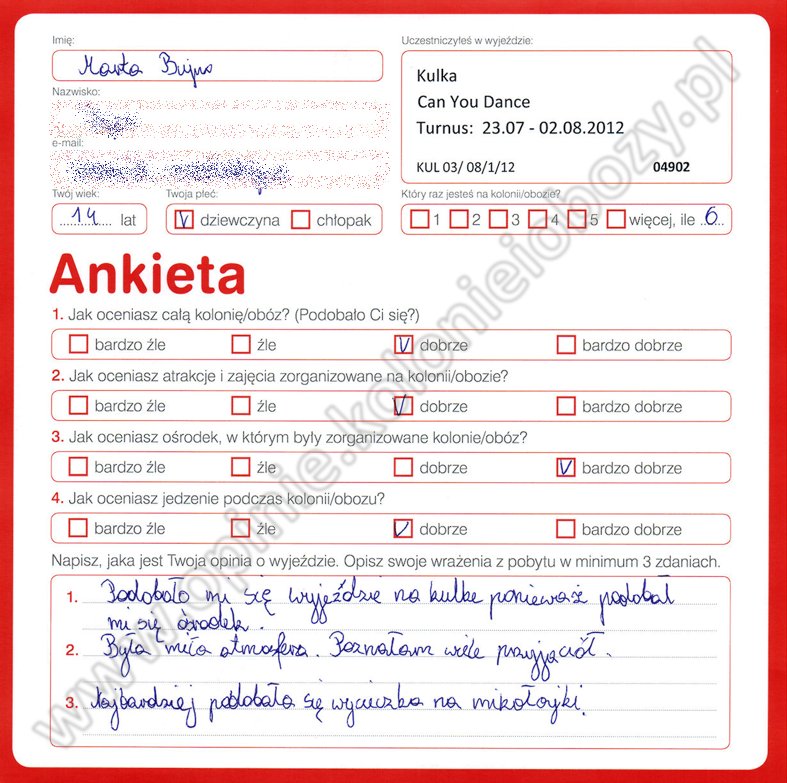 Imię:
Marta
Nazwisko:
e-mail:
Twój wiek:
14 lat
Twoja płeć:
V dziewczyna chłopak
Uczestniczyłeś w wyjeździe:
Kulka
Can You Dance
Turnus: 23.07 - 02.08.2012
KUL 03/ 08/1/12 04902
Który raz jesteś na kolonii/obozie?
1 2 3 4 5 więcej, ile 6
Ankieta
1. Jak oceniasz całą kolonię/obóz? (Podobało Ci się?)
bardzo źle źle V dobrze bardzo dobrze
2. Jak oceniasz atrakcje i zajęcia zorganizowane na kolonii/obozie?
bardzo źle źle V dobrze bardzo dobrze
3. Jak oceniasz ośrodek, w którym były zorganizowane kolonie/obóz?
bardzo źle źle dobrze V bardzo dobrze
4. Jak oceniasz jedzenie podczas kolonii/obozu?
bardzo źle źle V dobrze bardzo dobrze
Napisz, jaka jest Twoja opinia o wyjeździe. Opisz swoje wrażenia z pobytu w minimum 3 zdaniach.
1. Podobało mi się wyjeździe na kulke ponieważ podobał
mi się ośrodek.
2. Była miła atmosfera. Poznałam wiele przyjaciół.
3. Najbardziej podobała się wycieczka na mikołajki.
www.opinie.kolonieiobozy.pl